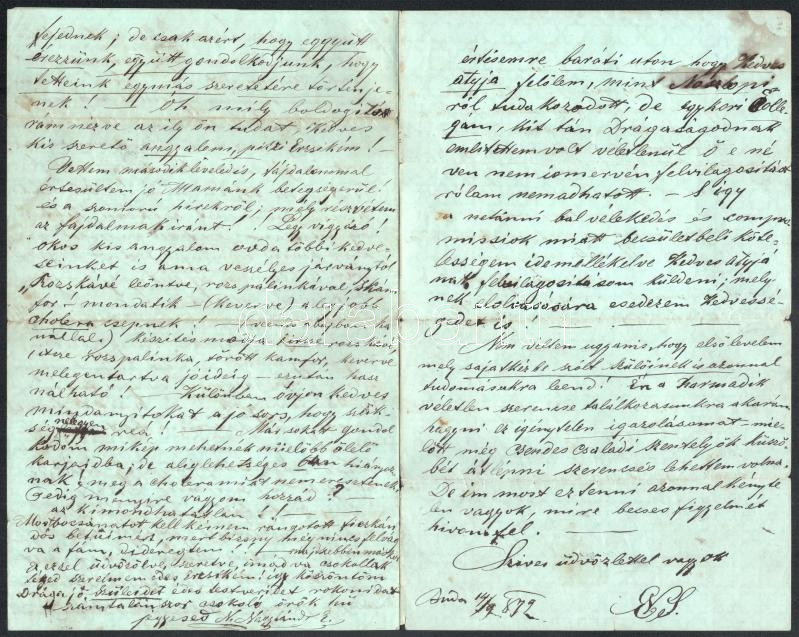 fejednek; de csak azért, hogy eggyütt
érezzünk, együtt gondolkodjunk, hogy
tetteink egymás szeretetére történje-
nek! Oh mily boldogító
rám nézve az ily ön tudat, kedves
kis szerető angyalom,
Vettem második leveledis, fájdalommal
értesültem jó Mamánk betegségerül!
és a szomorú hirekről; mely részvétem
az fajdalma kiránt! Légy vigyázó!
okos kis angyalom óvd a többi kedve-
seinket is ama veszélyes járványtól
„Rozskávé leöntve, rozs pálinkával,
for – mondatik – (keverve) a legjobb
cholera csepnek!
készités módja
rozs pálinka, törött kámfor, keverve
melegen tartva jó ideig ezután hasz
nálható! – Különben óvjon kedves
mindanyitokat a jó sors, hogy szük-
ség ne legyen reá! – Már sokat gondol
kodom mikép mehetnék mielőbb ölelő
karjaidba, de alig lehetséges
nak, meg a cholera miatt nem eresztenek
Pedig mennyire vagyom hozzád?
az kimondhatatlan!!
Most bocsánatot kell kérnem rángatott firkán
dós betüimért, mert bizony még nincs
va a fám, dideregtem!
ezzel üdvözölve, szeretve, imádva csokollak
téged szerelmem édes Ersikém! így köszöntöm
Drága jó Szüleidet édes testvéreidet rokonidat
számtalanszor csokoló örök hű
jegyesed
értésemre baráti uton hogy Kedves
atyja felőlem, mint Naszlopi
ról tudakozódott, de egykori Colle
gám, kit tán Drágaságodnak
emlitettem volt véletlenül Ő e né
ven nem ismervén felvilágositást
rólam nem adhatott. – S így
a netánni bal vélekedés és compro
missiok miatt becsületbeli köte-
lességem ide mellékelve Kedves Atyjá
nak felvilágositásom küldeni; mely
nek elolvasására esedezem Kedvessé-
gedet is
Nem véltem ugyanis, hogy első levelem
mely saját kézhez szólt szülőinek is azonnal
tudomásukra leend! Én a harmadik
véletlen szerencse találkozásunkra akarám
hagyni ez egénytelen igazolásomat – mie-
lőtt még Csendes családi szentélyök küszö-
bét átlépni szerencsés lehettem volna.
De im most ez tenni azonnal kényte
len vagyok, mire becses figyelmét
hivom fel.
Szives üdvözlettel vagyok
Buda 14/9 872